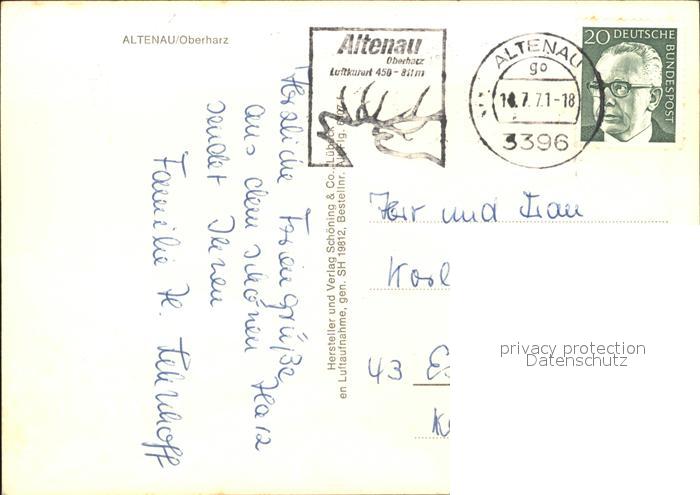 ALTENAU/Oberharz
Herzliche Feriengrüße
aus dem schönen Harz
sendet Ihnen
Familie H.
Hersteller und Verlag Schöning & Co., Lübeck
en Luftaufnahme, gen. SH 19812, Bestellnr.
Altenau
Oberharz
Luftkurort 450-811m
ALTENAU
go
7.71-18
3396
20 DEUTSCHE
BUNDESPOST
Herr und Frau
Karl
43 Es
privacy protection
Datenschutz